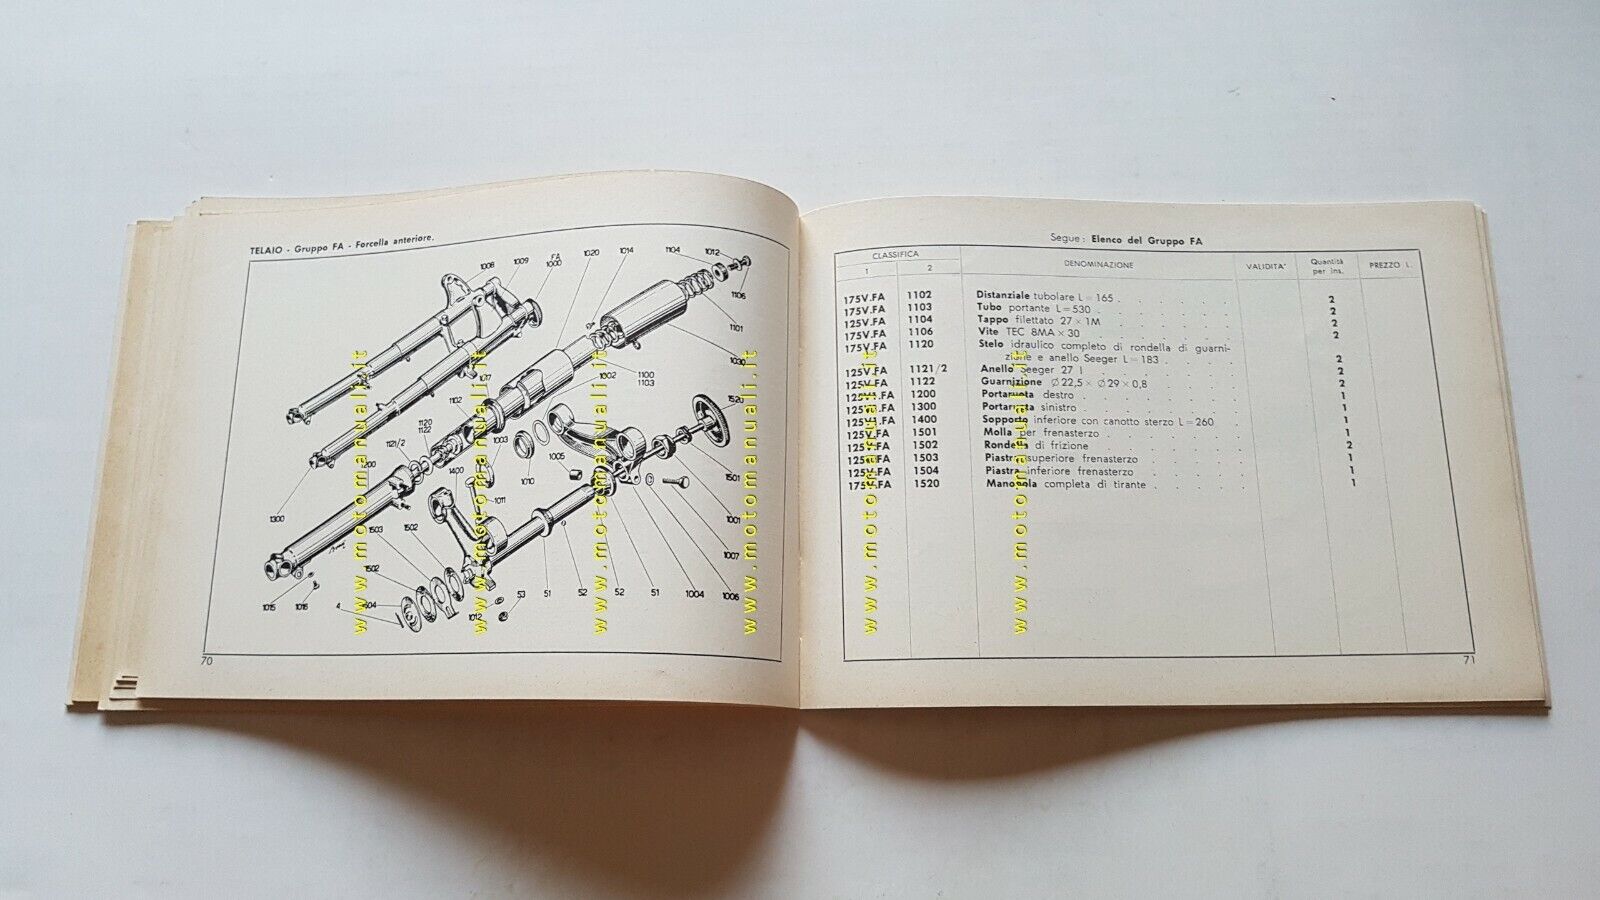 TELAIO - Gruppo FA - Forcella anteriore.
1008
1009
FA
1000
1020
1014
1104
1012
1106
1101
1030
1100
1103
1002
1017
1102
1120
1122
1121/2
1003
1520
1400
1005
1010
1011
1501
1300
1503
1502
1001
1007
1502
1015
1016
4
1012
53
51
52
52
51
1004
1006
70
Segue: Elenco del Gruppo FA
CLASSIFICA
1 2 DENOMINAZIONE VALIDITA' Quantità per ins. PREZZO L.
175V.FA 1102 Distanziale tubolare L=165 2
175V.FA 1103 Tubo portante L=530 2
125V.FA 1104 Tappo filettato 27×1M 2
175V.FA 1106 Vite TEC 8MA×30 2
175V.FA 1120 Stelo idraulico completo di rondella di guarni-
zione e anello Seeger L=183 2
125V.FA 1121/2 Anello Seeger 27 I 2
125V.FA 1122 Guarnizione Ø22,5×Ø29×0,8 2
1200 Portaruota destro 1
1300 Portaruota sinistro 1
1400 Supporto inferiore con canotto sterzo L=260 1
125V.FA 1501 Molla per frenasterzo 1
125V.FA 1502 Rondella di frizione 2
125V.FA 1503 Piastra superiore frenasterzo 1
125V.FA 1504 Piastra inferiore frenasterzo 1
175V.FA 1520 Manopola completa di tirante 1
71
www.motomanuali.it
www.motomanuali.it
www.motomanuali.it
www.motomanuali.it
www.motomanuali.it
www.motomanuali.it